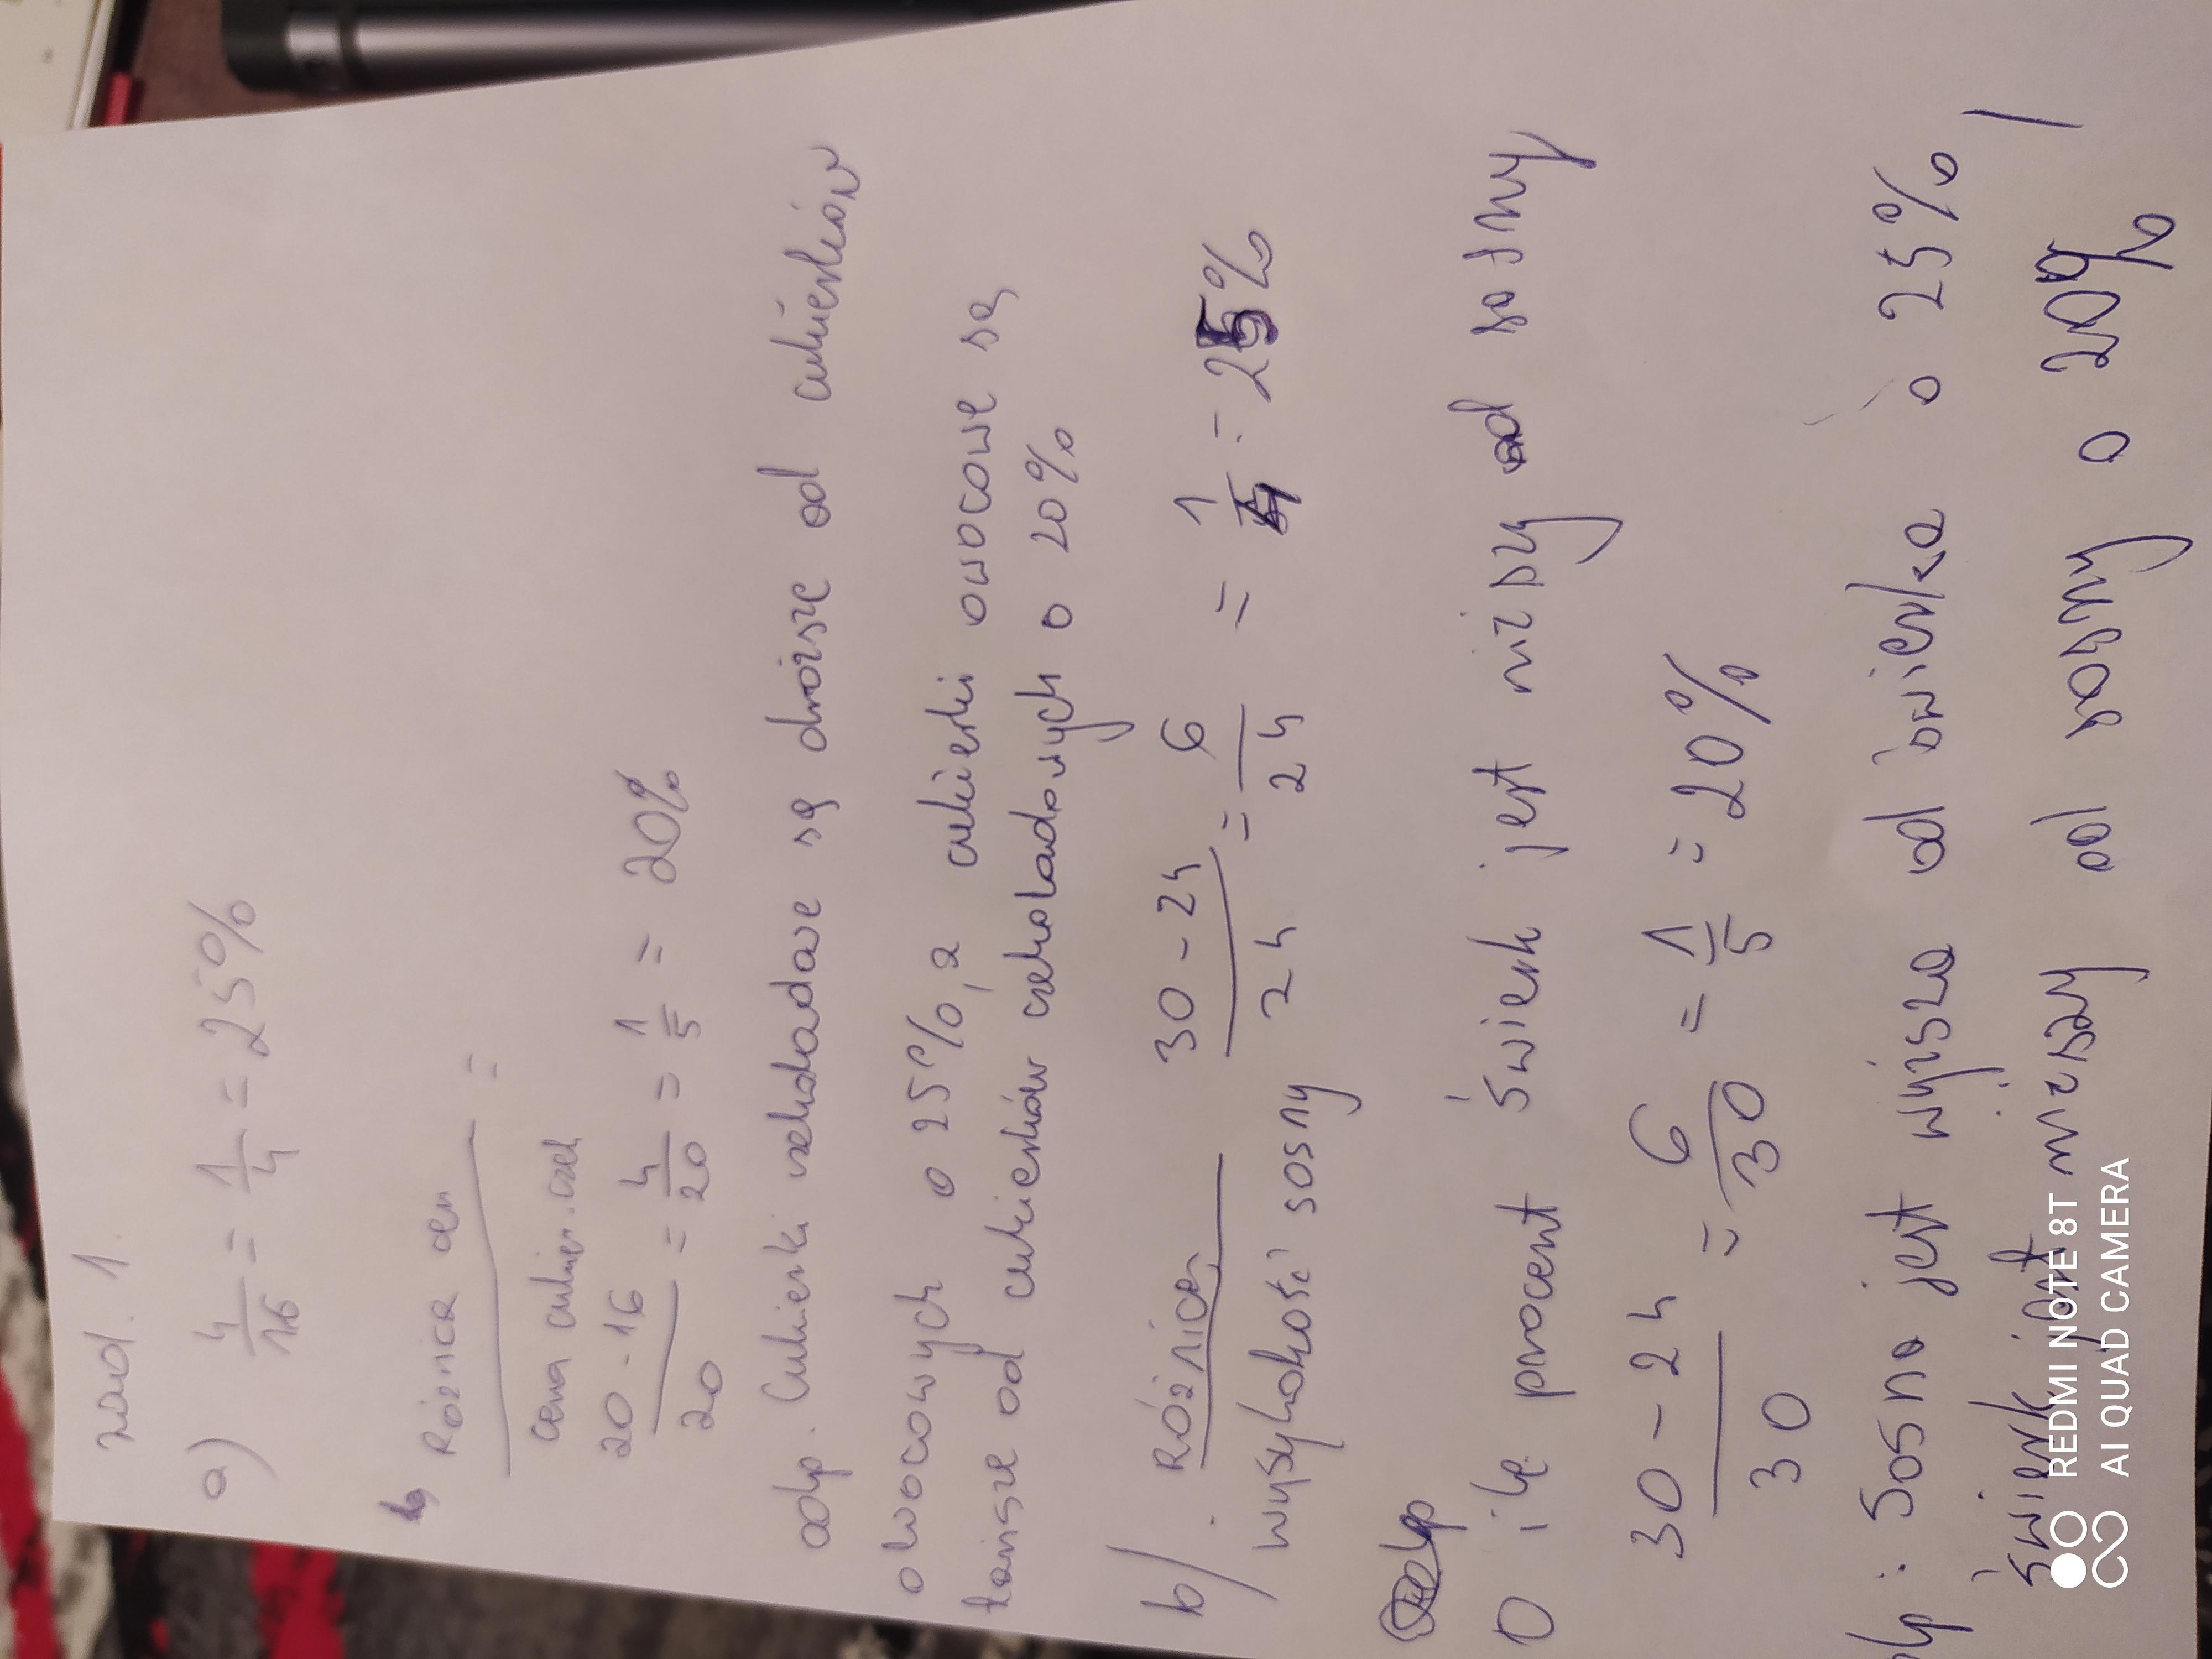 zad. 1.
a) 4/16 = 1/4 = 25%
Róznica cen =
cena cukier. czek
20 - 16 / 20 = 4/20 = 1/5 = 20%
odp. Cukierki czekoladowe są droższe od cukierków
owocowych o 25%, a cukierki owocowe są
tańsze od cukierków czekoladowych o 20%
b) Różnica 30 - 24 / 24 = 6/24 = 1/4 = 25%
wysykokości sosny
O ile procent świerk jest niższy od sosny
30 - 24 / 30 = 6/30 = 1/5 = 20%
odp: Sosna jest wyższa od świerka o 25%
świerk jest niższy od sosny o 20%
REDMI NOTE 8T
AI QUAD CAMERA